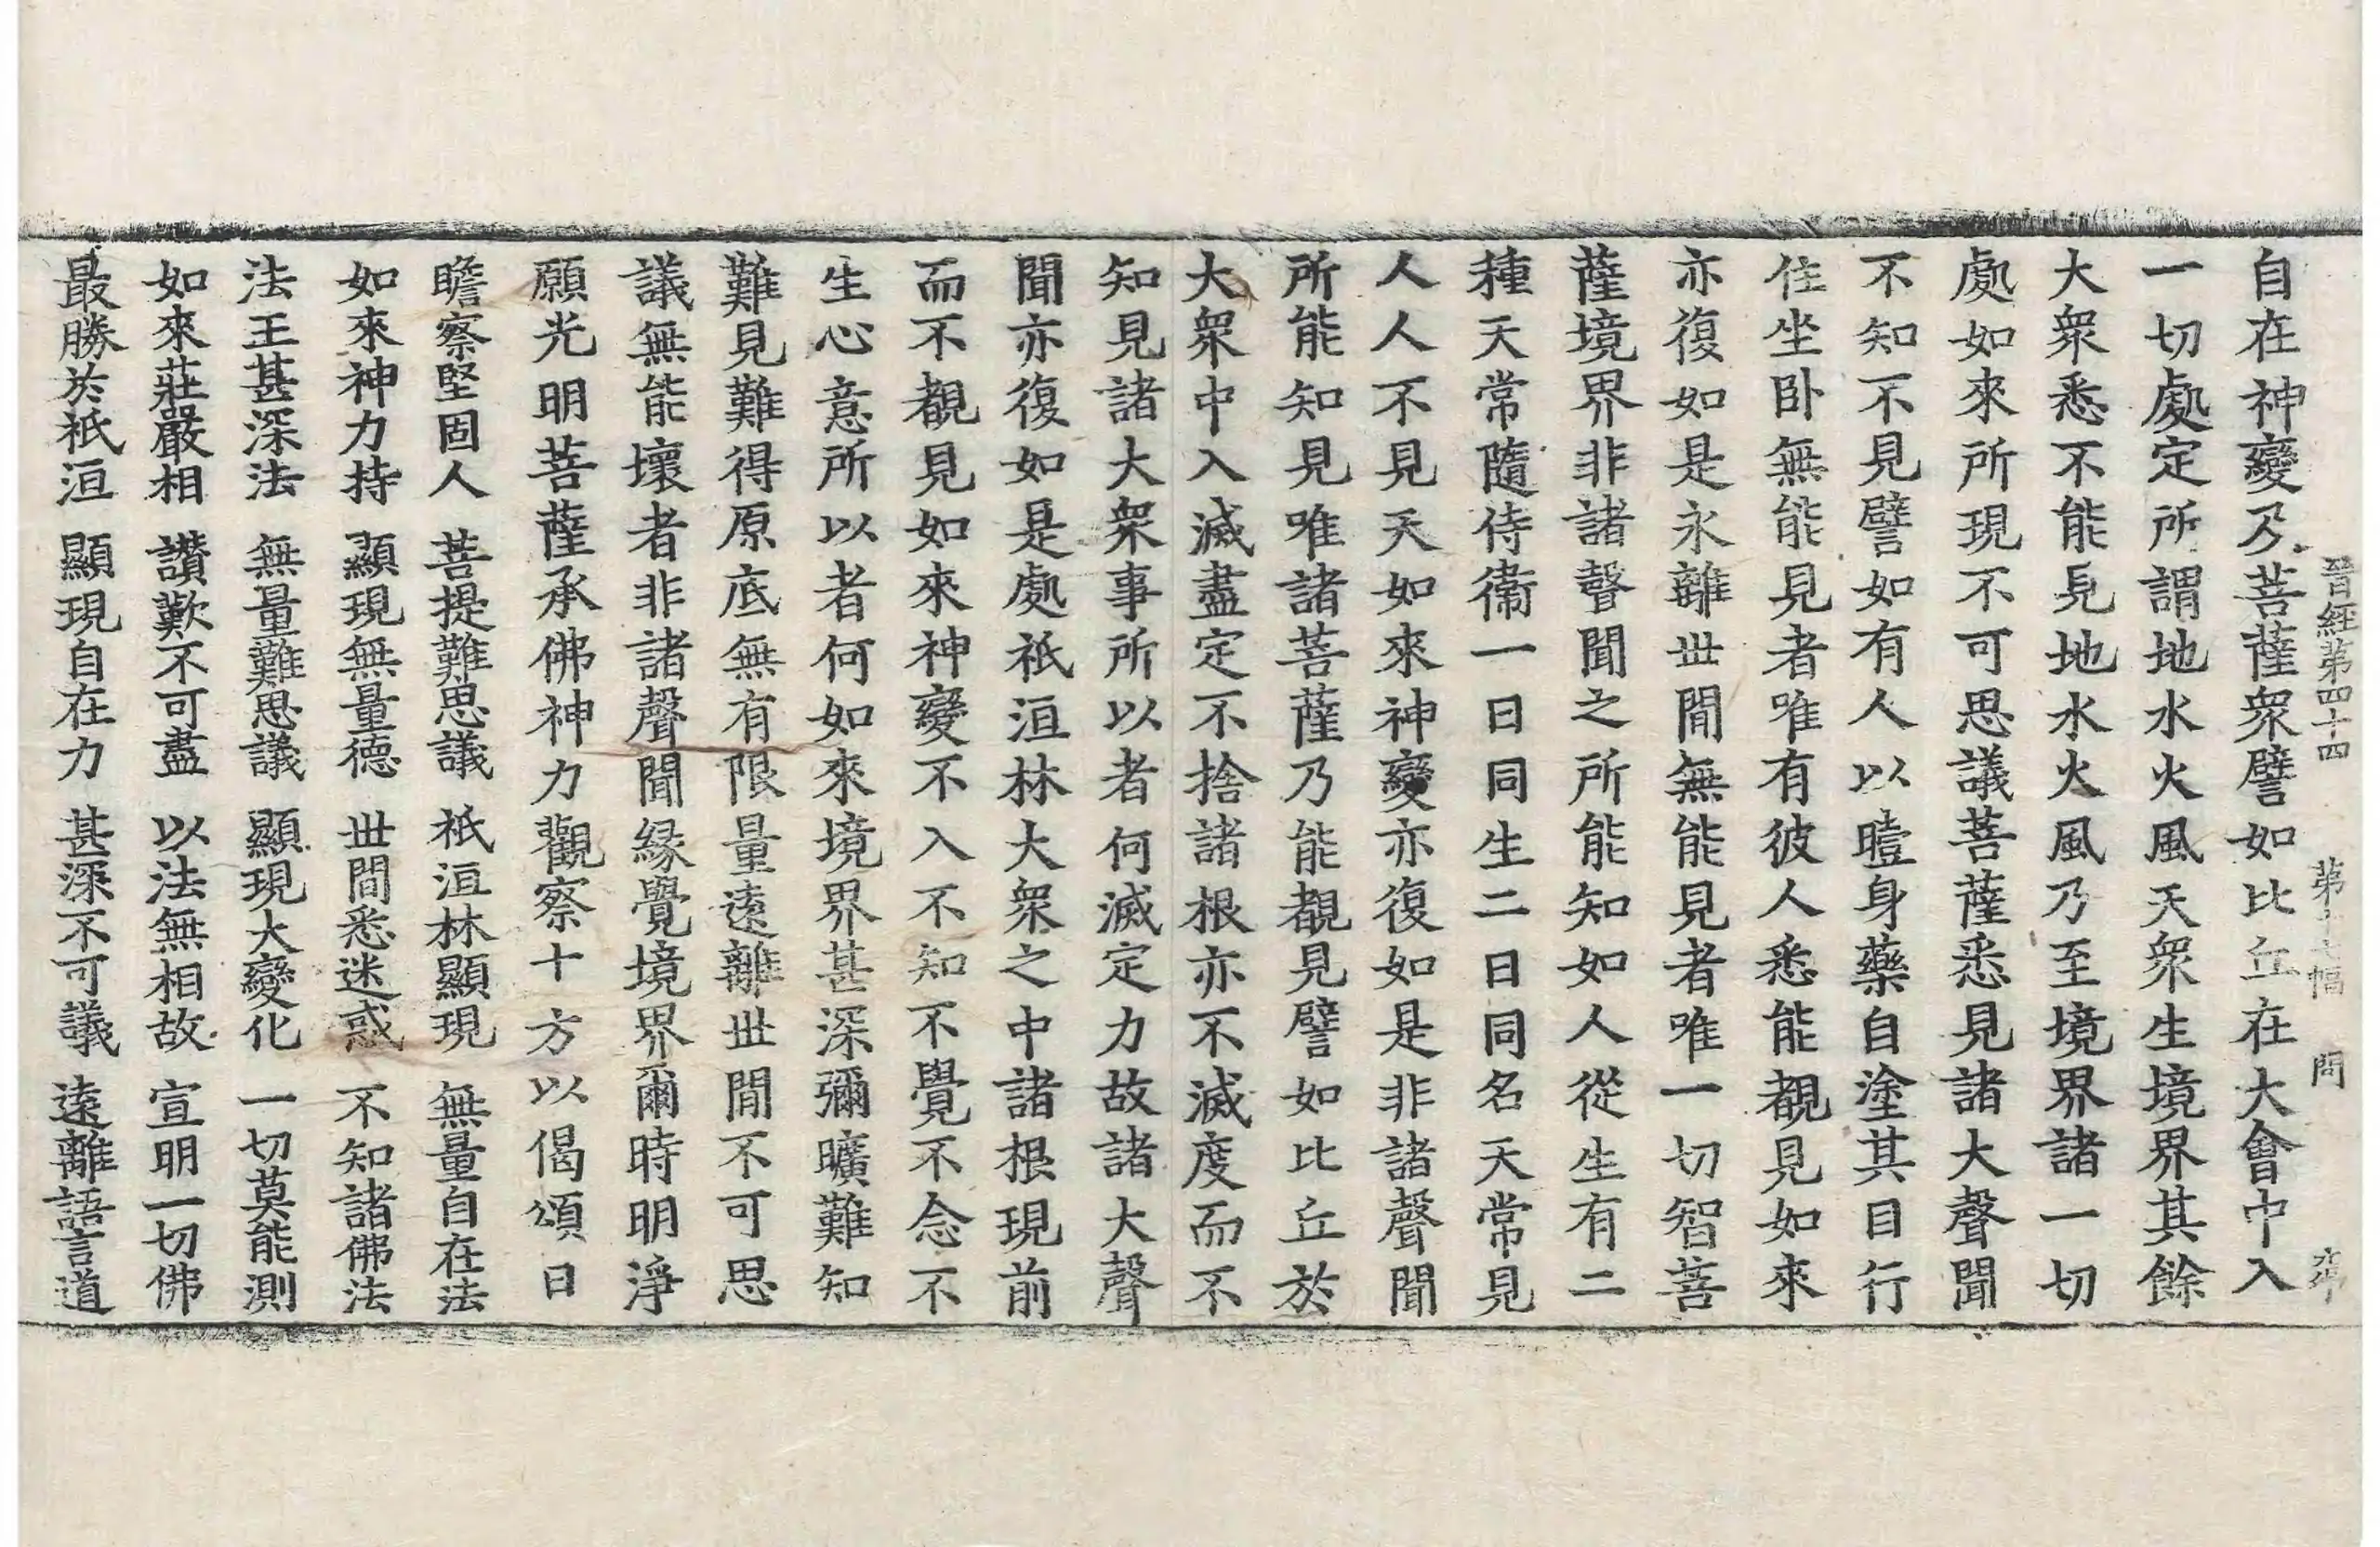 晉經第四十四 第十七幅 問
自在神變乃菩薩衆譬如比丘在大會中入
一切處定所謂地水火風天衆生境界其餘
大衆悉不能見地水火風乃至境界諸一切
處如來所現不可思議菩薩悉見諸大聲聞
不知不見譬如有人以曀身藥自塗其目行
住坐臥無能見者唯有彼人悉能覩見如來
亦復如是永離世閒無能見者唯一切智菩
薩境界非諸聲聞之所能知如人從生有二
種天常隨侍衞一日同生二日同名天常見
人人不見天如來神變亦復如是非諸聲聞
所能知見唯諸菩薩乃能覩見譬如比丘於
大衆中入滅盡定不捨諸根亦不滅度而不
知見諸大衆事所以者何滅定力故諸大聲
聞亦復如是處祇洹林大衆之中諸根現前
而不覩見如來神變不入不知不覺不念不
生心意所以者何如來境界甚深彌曠難知
難見難得原底無有限量遠離世閒不可思
議無能壞者非諸聲聞緣覺境界爾時明淨
願光明菩薩承佛神力觀察十方以偈頌曰
瞻察堅固人 菩提難思議 祇洹林顯現 無量自在法
如來神力持 顯現無量德 世間悉迷惑 不知諸佛法
法王甚深法 無量難思議 顯現大變化 一切莫能測
如來莊嚴相 讚歎不可盡 以法無相故 宣明一切佛
最勝於祇洹 顯現自在力 甚深不可議 遠離語言道